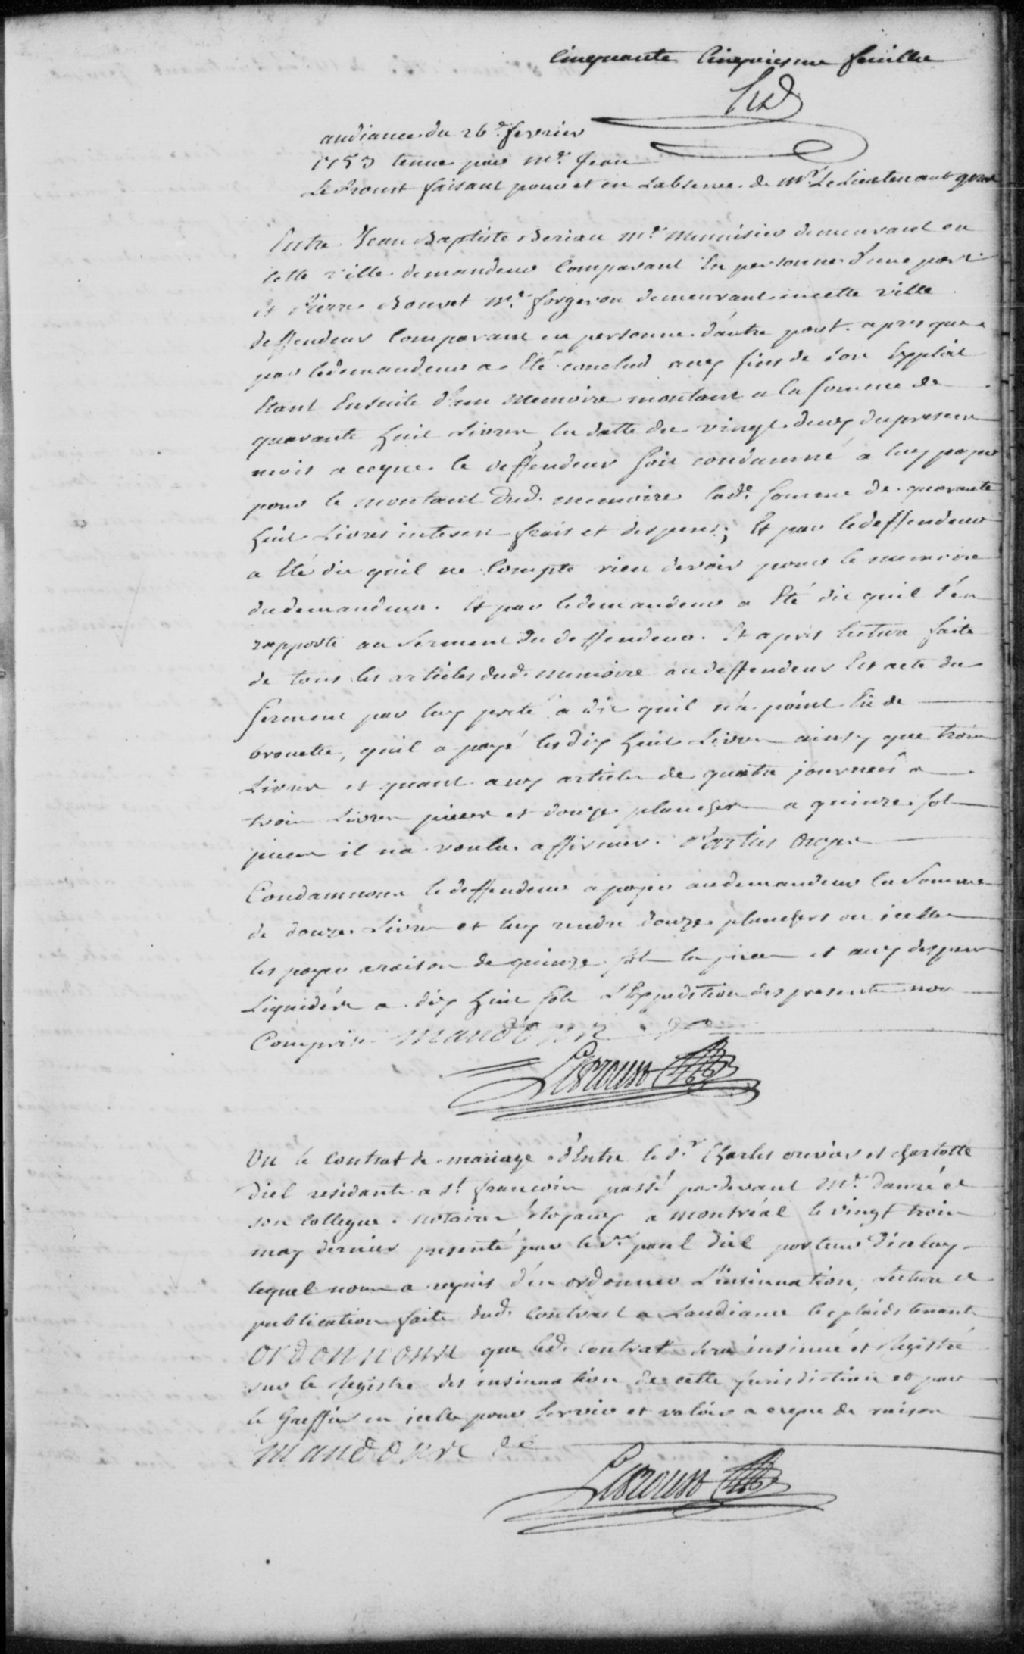 Cinquante Cinquiesme feuillet
audiance du 26e fevrier
1753 tenue par Mr. Jean
Leproust faisant pour et en Labsence de Mr. Le Lieutenant gnal
Entre Jean Baptiste Beriau Me. Menuisier demeurant en
cette ville demandeur Comparant En personne d'une part
Et Pierre Bouvet Me. forgeron demeurant en cette ville
deffendeur Comparant en personne d'autre part. apres que
par le demandeur a Eté conclud aux fins de son Exploit
Etant Ensuite d'un Memoire montant a la somme de
quarante huit Livres, en datte du vingt deux du present
mois a ce que le deffendeur soit condamné a luy payer
pour le montant dud. memoire lade. somme de quarante
huit Livres interest frais et despens; Et par le deffendeur
a Eté dit quil ne Compte rien devoir pour le memoire
du demandeur. Et par le demandeur a Eté dit quil s'en
rapporte au serment du deffendeur. Et apres lecture faite
de tous les articles dud. memoire au deffendeur Et acte du
serment par luy presté a dit quil n'a point eü de
brouette, quil a payé les dix huit Livres ainsy que trois
Livres et quant aux articles de quatre journeés a
trois Livres piece et douze planches a quinze sols
piece il n'a voulu affirmer. Parties ouyes
Condamnons le deffendeur a payer au demandeur la somme
de douze Livres et luy rendre douze planches ou icelles
les payer a raison de quinze sols la piece et aux despens
Liquidés a dix huit sols L'Expedition des presentes non
Comprise Mandons &c
Leproust
Vu le Contrat de mariage d'Entre le Sr. Charles cuvier et charlotte
diel residante a St. francois passé pardevant Me. Danré et
son collegue notaires Royaux a Montréal le vingt trois
may dernier presenté par le Sr. paul diel porteur d'iceluy
lequel nous a requis d'en ordonner L'insinuation, Lecture et
publication faite dud. Contrat a Laudiance les plaids tenant
Ordonnons que led. Contrat sera insinué et Registré
sur le Registre des insinuations de cette Jurisdiction et par
le Greffier en icelle pour servir et valoir a ce que de raison
Mandons &c
Leproust